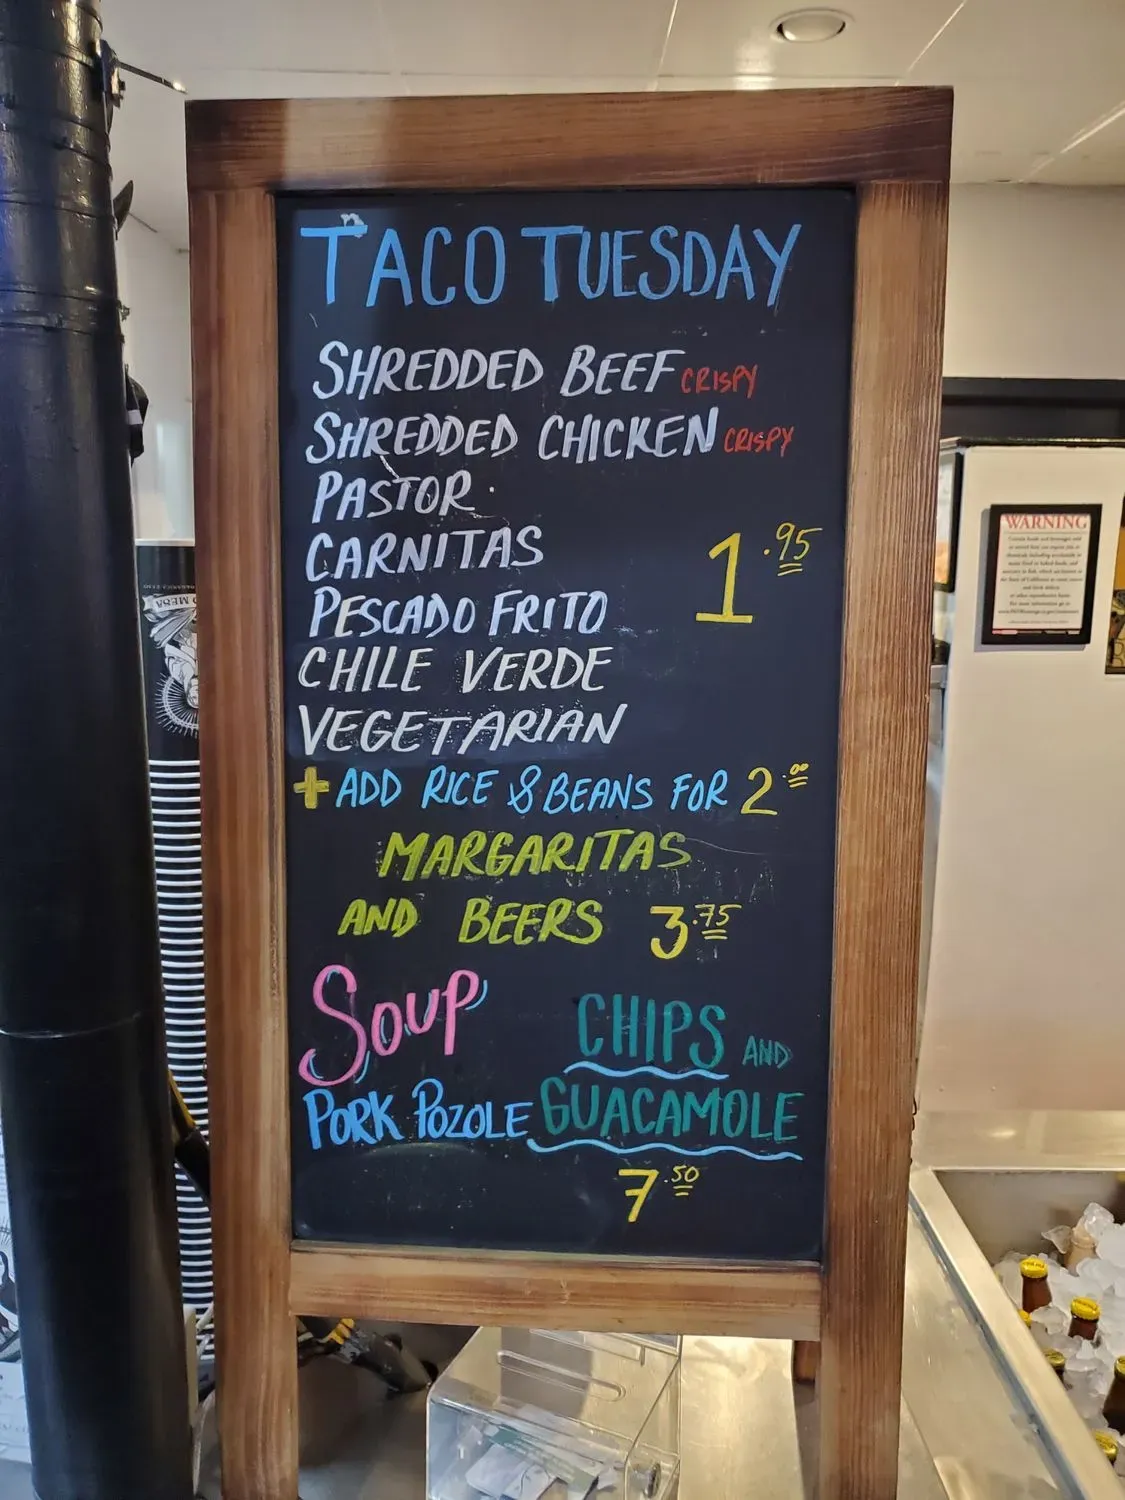 TACO TUESDAY
SHREDDED BEEF CRISPY
SHREDDED CHICKEN CRISPY
PASTOR
CARNITAS
1.95
PESCADO FRITO
CHILE VERDE
VEGETARIAN
+ ADD RICE & BEANS FOR 2.00
MARGARITAS
AND BEERS 3.75
SOUP
PORK POZOLE
CHIPS AND
GUACAMOLE
7.50
WARNING